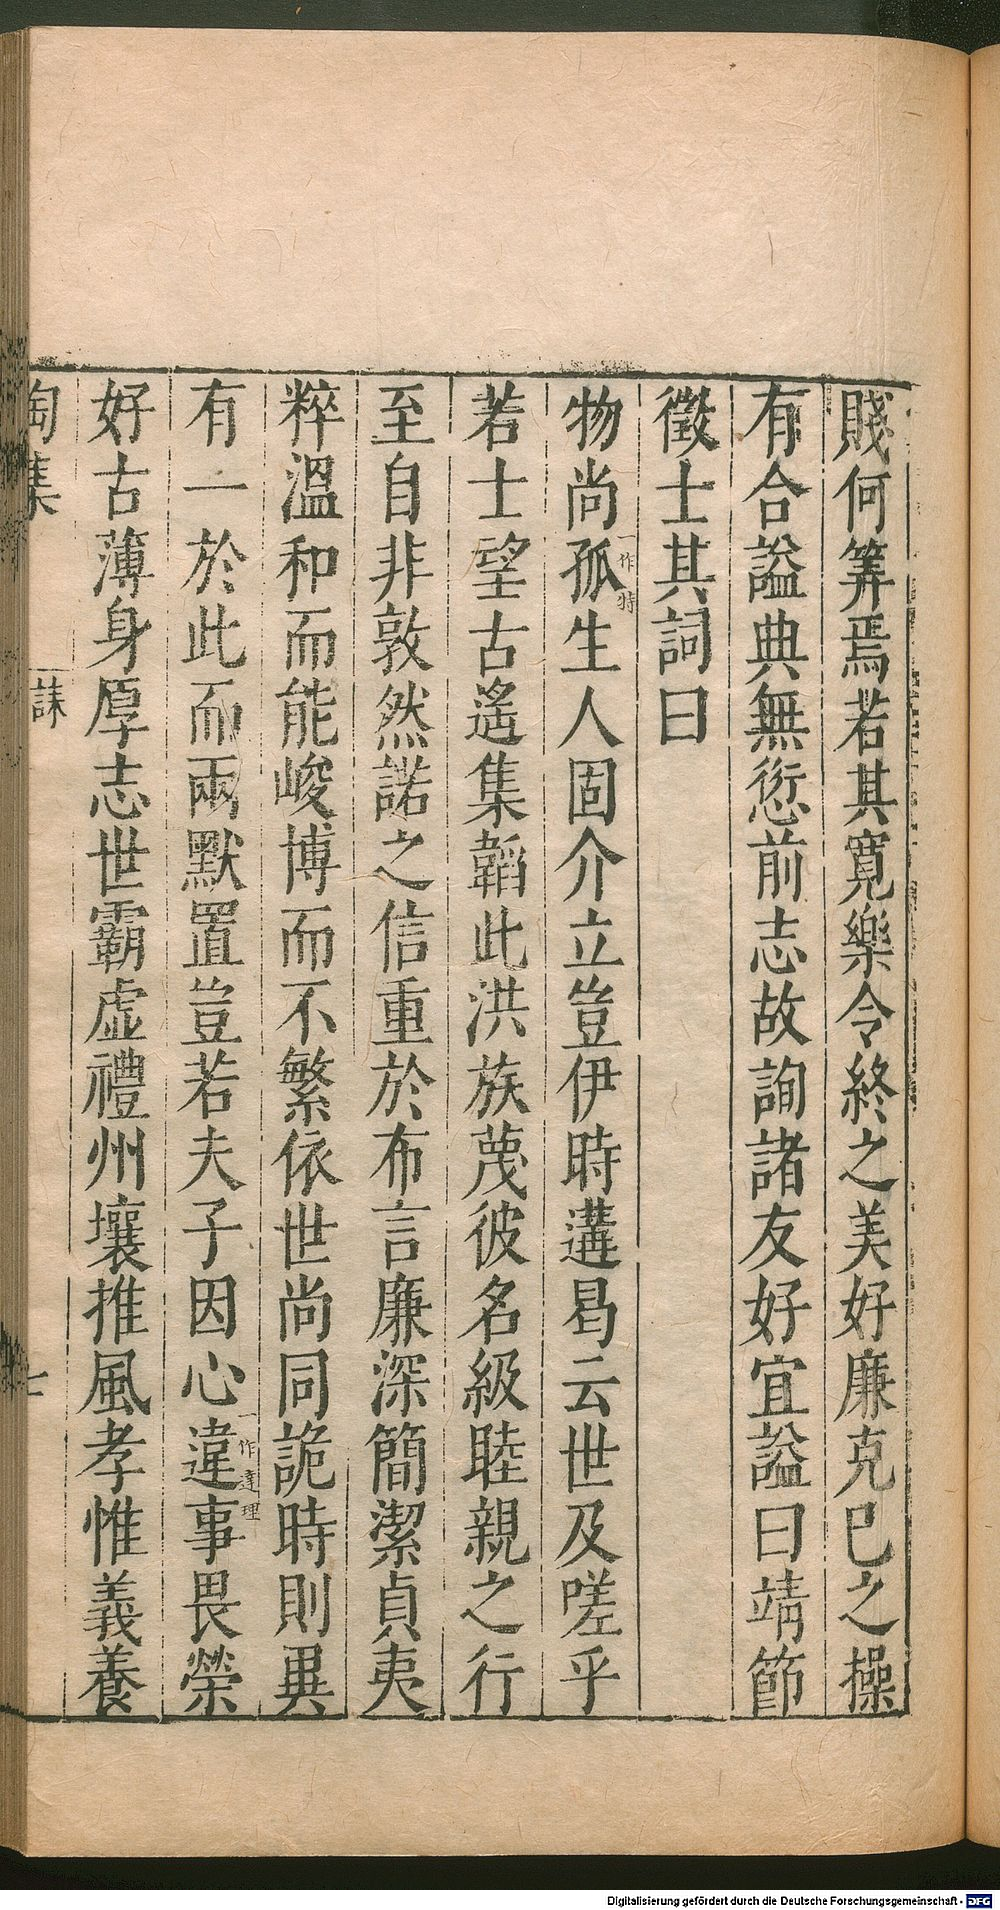 賤何筭焉若其寬樂令終之美好廉克已之操
有合謚典無愆前志故詢諸友好宜謚曰靖節
徵士其詞曰
物尚孤一作特生人固介立豈伊時遘曷云世及嗟乎
若士望古遙集韜此洪族蔑彼名級睦親之行
至自非敦然諾之信重於布言廉深簡潔貞夷
粹溫和而能峻博而不繁依世尚同詭時則異
有一於此而兩默置豈若夫子因心違事一作達理畏榮
好古薄身厚志世霸虛禮州壤推風孝惟義養
陶集 誄 七
Digitalisierung gefördert durch die Deutsche Forschungsgemeinschaft - DFG